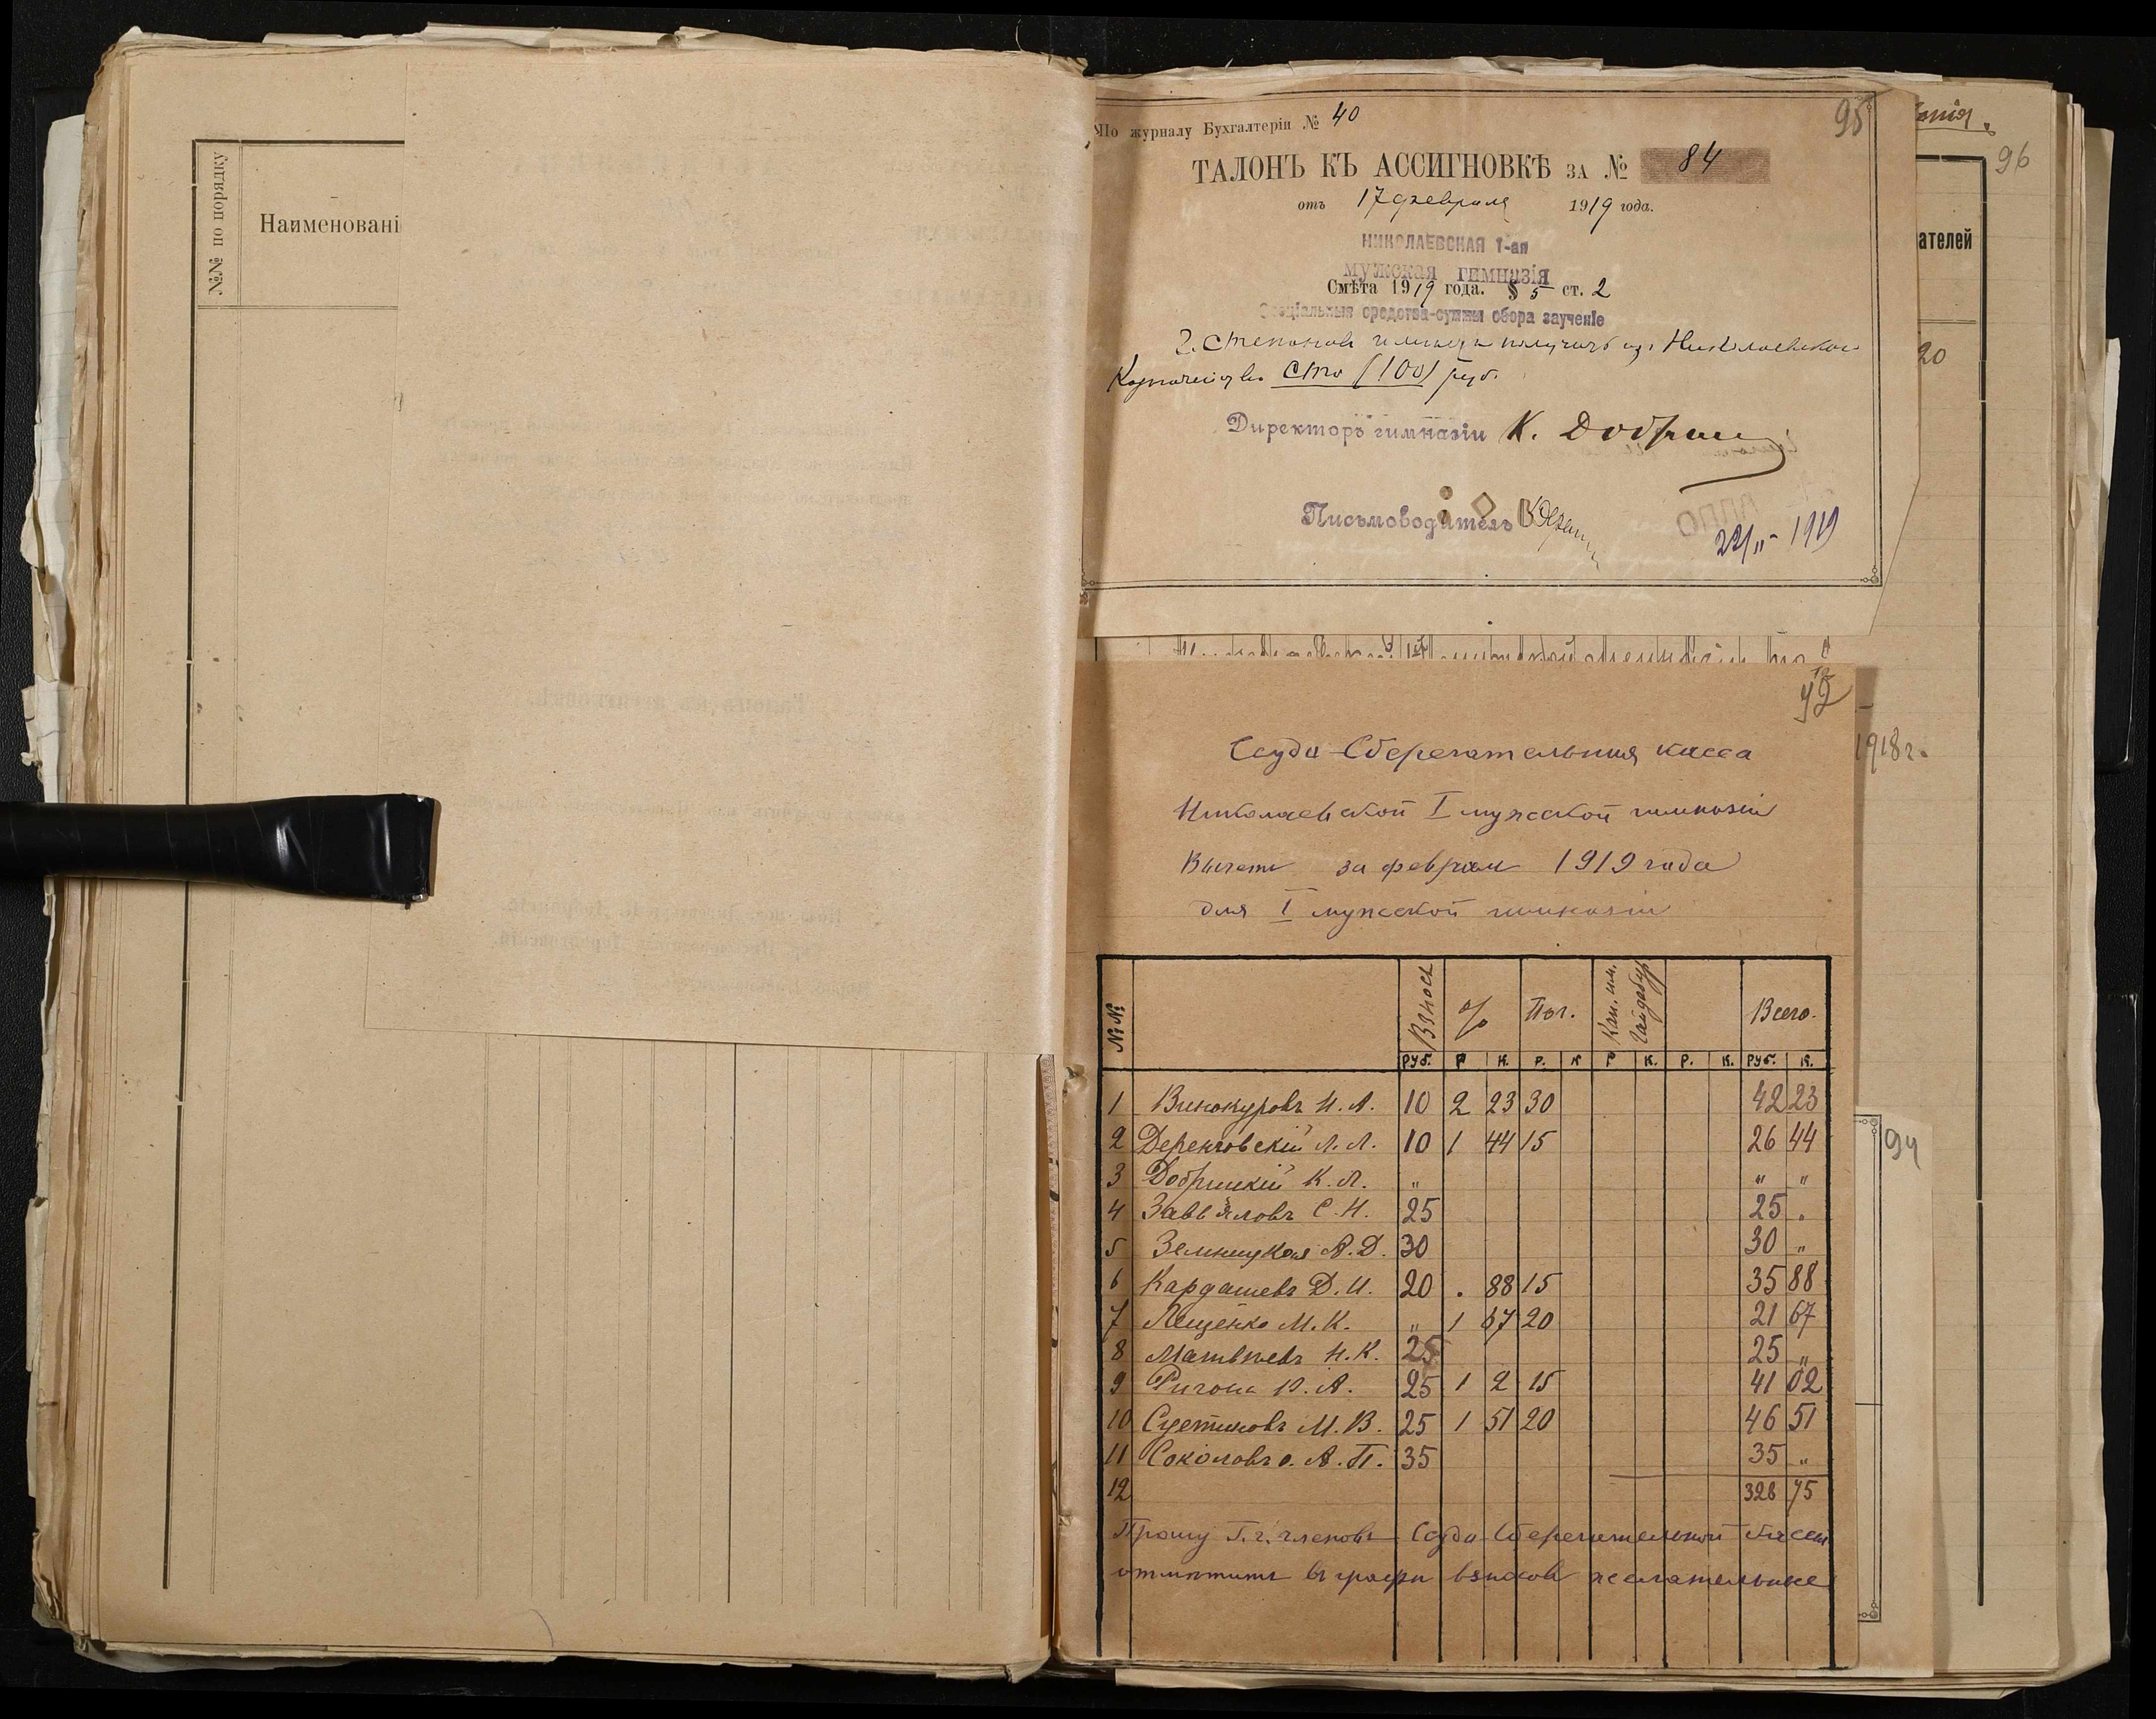 №№ по порядку
Наименованіе
По журналу Бухгалтеріи № 40
95
ТАЛОНЪ КЪ АССИГНОВКѢ ЗА № 84
отъ 17 февраля 1919 года.
НИКОЛАЕВСКАЯ 1-ая
мужская гимназія
Смѣта 1919 года. § 5 ст. 2
Спеціальныя средства-суммы сбора за ученіе
Г. Степановъ имѣетъ получить изъ Николаевскаго
Казначейства сто (100) руб.
Директоръ гимназіи К. Добр
Письмоводитель
22/II - 1919
анія.
96
ателей
20
1918 г.
94
Ссудо-Сберегательная касса
Николаевской I мужской гимназіи
Вычеты за февраль 1919 года
для I мужской гимназіи
№№ Взносъ % Пог. Кап. им. Гайдабур. Всего.
Руб. Р К. Р. К Р К. Р. К. Руб. К.
1 Винокуровъ Н. А. 10 2 23 30 42 23
2 Деренговскій Л. Л. 10 1 44 15 26 44
3 Добрицкій К. Л. " " "
4 Завьяловъ С. Н. 25 25 "
5 Земницкая А. Д. 30 30 "
6 Кардашевъ Д. И. 20 . 88 15 35 88
7 Лещенко М. К. " 1 67 20 21 67
8 Матвѣевъ Н. К. 25 25 "
9 А. 25 1 2 15 41 02
10 М. В. 25 1 51 20 46 51
11 Соколовъ о. А. П. 35 35 "
12 328 75
Прошу Г.г. членовъ Ссудо-Сберегательной Кассы
отмѣтить въ графѣ взносовъ желательные